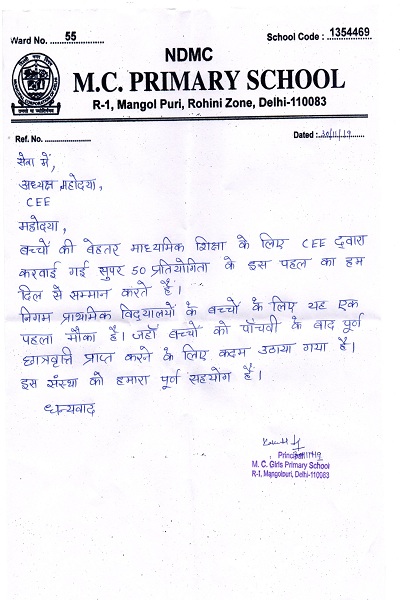 Ward No. 55 School Code : 1354469
NDMC
M.C. PRIMARY SCHOOL
R-1, Mangol Puri, Rohini Zone, Delhi-110083
Ref. No. ....................... Dated : 30/11/19
सेवा में,
अध्यक्ष महोदया,
CEE
महोदया,
बच्चों की बेहतर माध्यमिक शिक्षा के लिए CEE द्वारा
करवाई गई सुपर 50 प्रतियोगिता के इस पहल का हम
दिल से सम्मान करते है।
निगम प्राथमिक विद्यालयों के बच्चों के लिए यह एक
पहला मौका है। जहाँ बच्चों को पाँचवी के बाद पूर्ण
छात्रवृत्ति प्राप्त करने के लिए कदम उठाया गया है।
इस संस्था को हमारा पूर्ण सहयोग हैं।
धन्यवाद
Principal
M. C. Girls Primary School
R-1, Mangolpuri, Delhi-110083